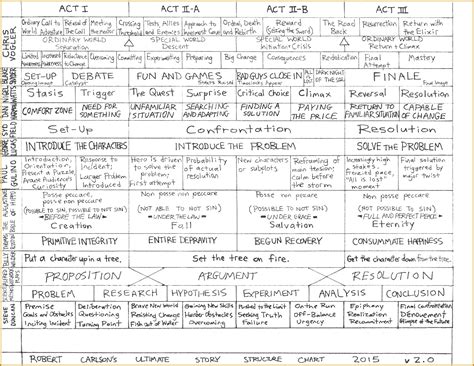 ACT I ACT II-A ACT II-B ACT III
Ordinary World Call to Adventure Refusal of the Call Meeting Mentor Crossing Threshold Tests Allies Enemies Approach to Inmost Cave Ordeal, Death, Rebirth Reward (Seizing the Sword) The Road Back Resurrection Return with the Elixir
ORDINARY WORLD Separation SPECIAL WORLD Descent SPECIAL WORLD Initiation: Crisis ORDINARY WORLD Return: Climax
CHRIS VOGLER
Limited Awareness Increased Awareness Reluctance Overcoming Committing Experimenting Preparing Big Change Consequences Rededication Final Attempt Mastery
SET-UP DEBATE FUN AND GAMES BAD GUYS CLOSE IN ALL IS LOST DARK NIGHT OF THE SOUL FINALE
Stasis Trigger The Quest Surprise Critical Choice Climax Reversal Resolution
COMFORT ZONE NEED FOR SOMETHING UNFAMILIAR SITUATION SEARCHING AND ADAPTING FINDING A SOLUTION PAYING A PRICE RETURN TO FAMILIAR SITUATION CAPABLE OF CHANGE
Set-Up Confrontation Resolution
INTRODUCE THE CHARACTERS INTRODUCE THE PROBLEM SOLVE THE PROBLEM
Introduction, Orientation, Present a Puzzle, Arouse Audience's Curiosity
Response to Incident: Larger Problem Introduced
Hero is driven to solve first Problem Introduced
Probability of actual resolution
New characters or subplots
Reframing of main tension; calm before the storm
Increasingly high stakes, Frenzied pace, "All is lost" moment
Final solution triggered by major twist
Posse non peccare Non posse non peccare Posse non peccare Non posse peccare
(POSSIBLE TO NOT SIN, POSSIBLE TO NOT DIE) (NOT ABLE TO NOT SIN) (POSSIBLE TO NOT SIN) (NOT POSSIBLE TO SIN)
BEFORE THE LAW UNDER THE LAW UNDER GRACE FULL AND PERFECT PEACE
Creation Fall Salvation Eternity
PRIMITIVE INTEGRITY ENTIRE DEPRAVITY BEGUN RECOVERY CONSUMMATE HAPPINESS
Put a character up in a tree. Set the tree on fire. Get the character down from the tree.
PROPOSITION ARGUMENT RESOLUTION
PROBLEM RESEARCH HYPOTHESIS EXPERIMENT ANALYSIS CONCLUSION
STEVE DUNCAN
Premise Goals and Obstacles Inciting Incident
Deliberation Questioning Turning Point
Brave New World Finishing Change Fish Out of Water
Gaining New Skills Harder Obstacles Overcoming
Pushed to the Limit Seeking Truth Failing
On the Run Off-Balance Urgency
Epiphany Realization Recommitment
Final Confrontation Dénouement Glimpse of the Future
ROBERT CARLSON'S ULTIMATE STORY STRUCTURE CHART 2015 v 2.0